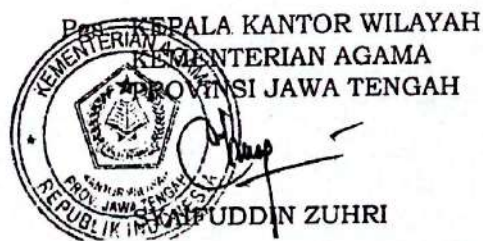 Pgs. KEPALA KANTOR WILAYAH
KEMENTERIAN AGAMA
PROVINSI JAWA TENGAH
KEMENTERIAN AGAMA
KANTOR WILAYAH
PROV. JAWA TENGAH
REPUBLIK INDONESIA
SYAIFUDDIN ZUHRI